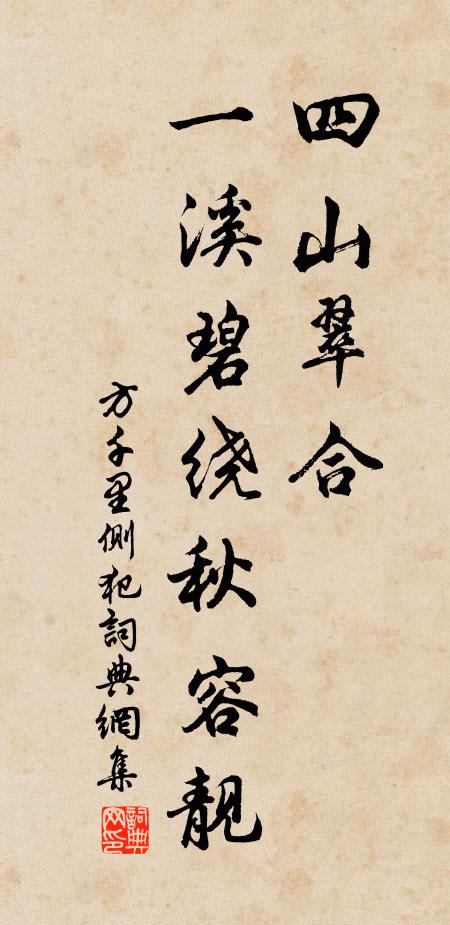 四山翠合
一溪碧绕秋容靚
方千里側犯詞典網集
詞典網印